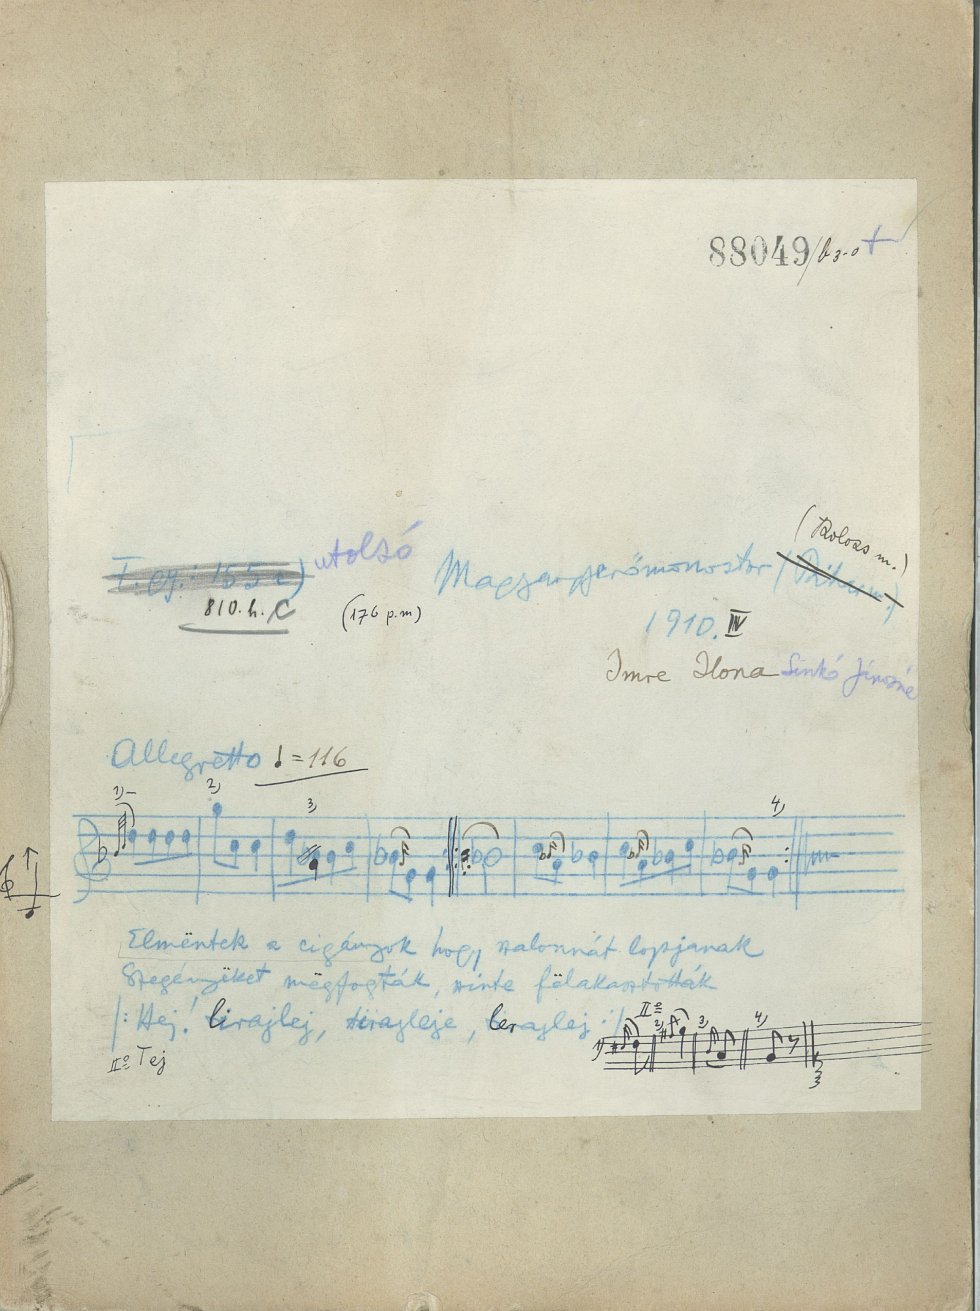 88049/b 3-0 +
(Kolozs m.)
utolsó Magyargyerőmonostor
810. h. C (176 p.m)
1910. IV
Imre Ilona Sinkó Jánosné
Allegretto ♩ = 116
1) 2) 3) 4)
Elmëntek a cigányok hogy szalonnát lopjanak
Szegényëket mëgfogták, szinte fëlakasztották
|: Hej! lirajlej, tirajleje, lerajlej :|
IIº Tej
IIº
1) 2) 3) 4)